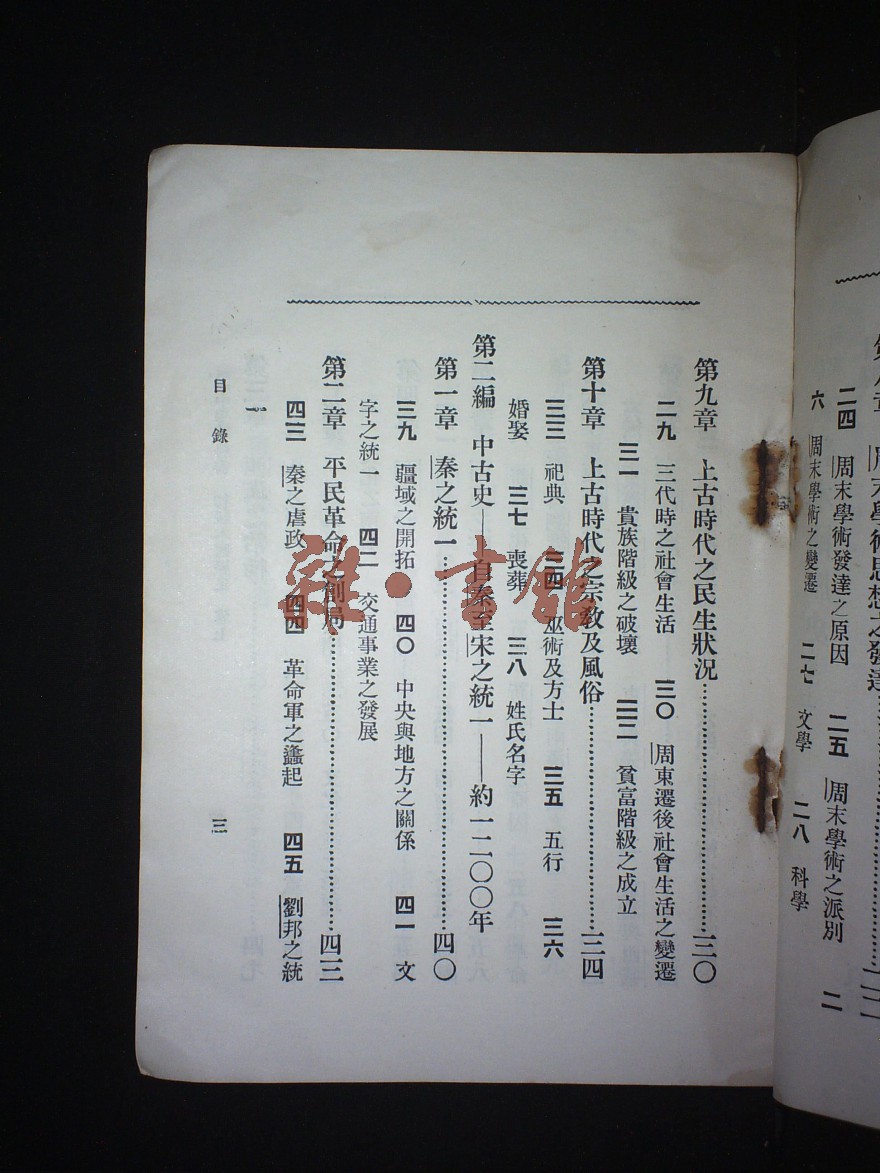 周末學術思想之發達
二四 周末學術發達之原因 二五 周末學術之派別 二
六 周末學術之變遷 二七 文學 二八 科學
第九章 上古時代之民生狀況……三〇
二九 三代時之社會生活 三〇 周東遷後社會生活之變遷
三一 貴族階級之破壞 三二 貧富階級之成立
第十章 上古時代之宗教及風俗……三四
三三 祀典 三四 巫術及方士 三五 五行 三六
婚娶 三七 喪葬 三八 姓氏名字
第二編 中古史——自秦至宋之統一——約一二〇〇年
第一章 秦之統一……四〇
三九 疆域之開拓 四〇 中央與地方之關係 四一 文
字之統一 四二 交通事業之發展
第二章 平民革命之創局……四三
四三 秦之虐政 四四 革命軍之蠭起 四五 劉邦之統
一
目錄 三
雜·書館